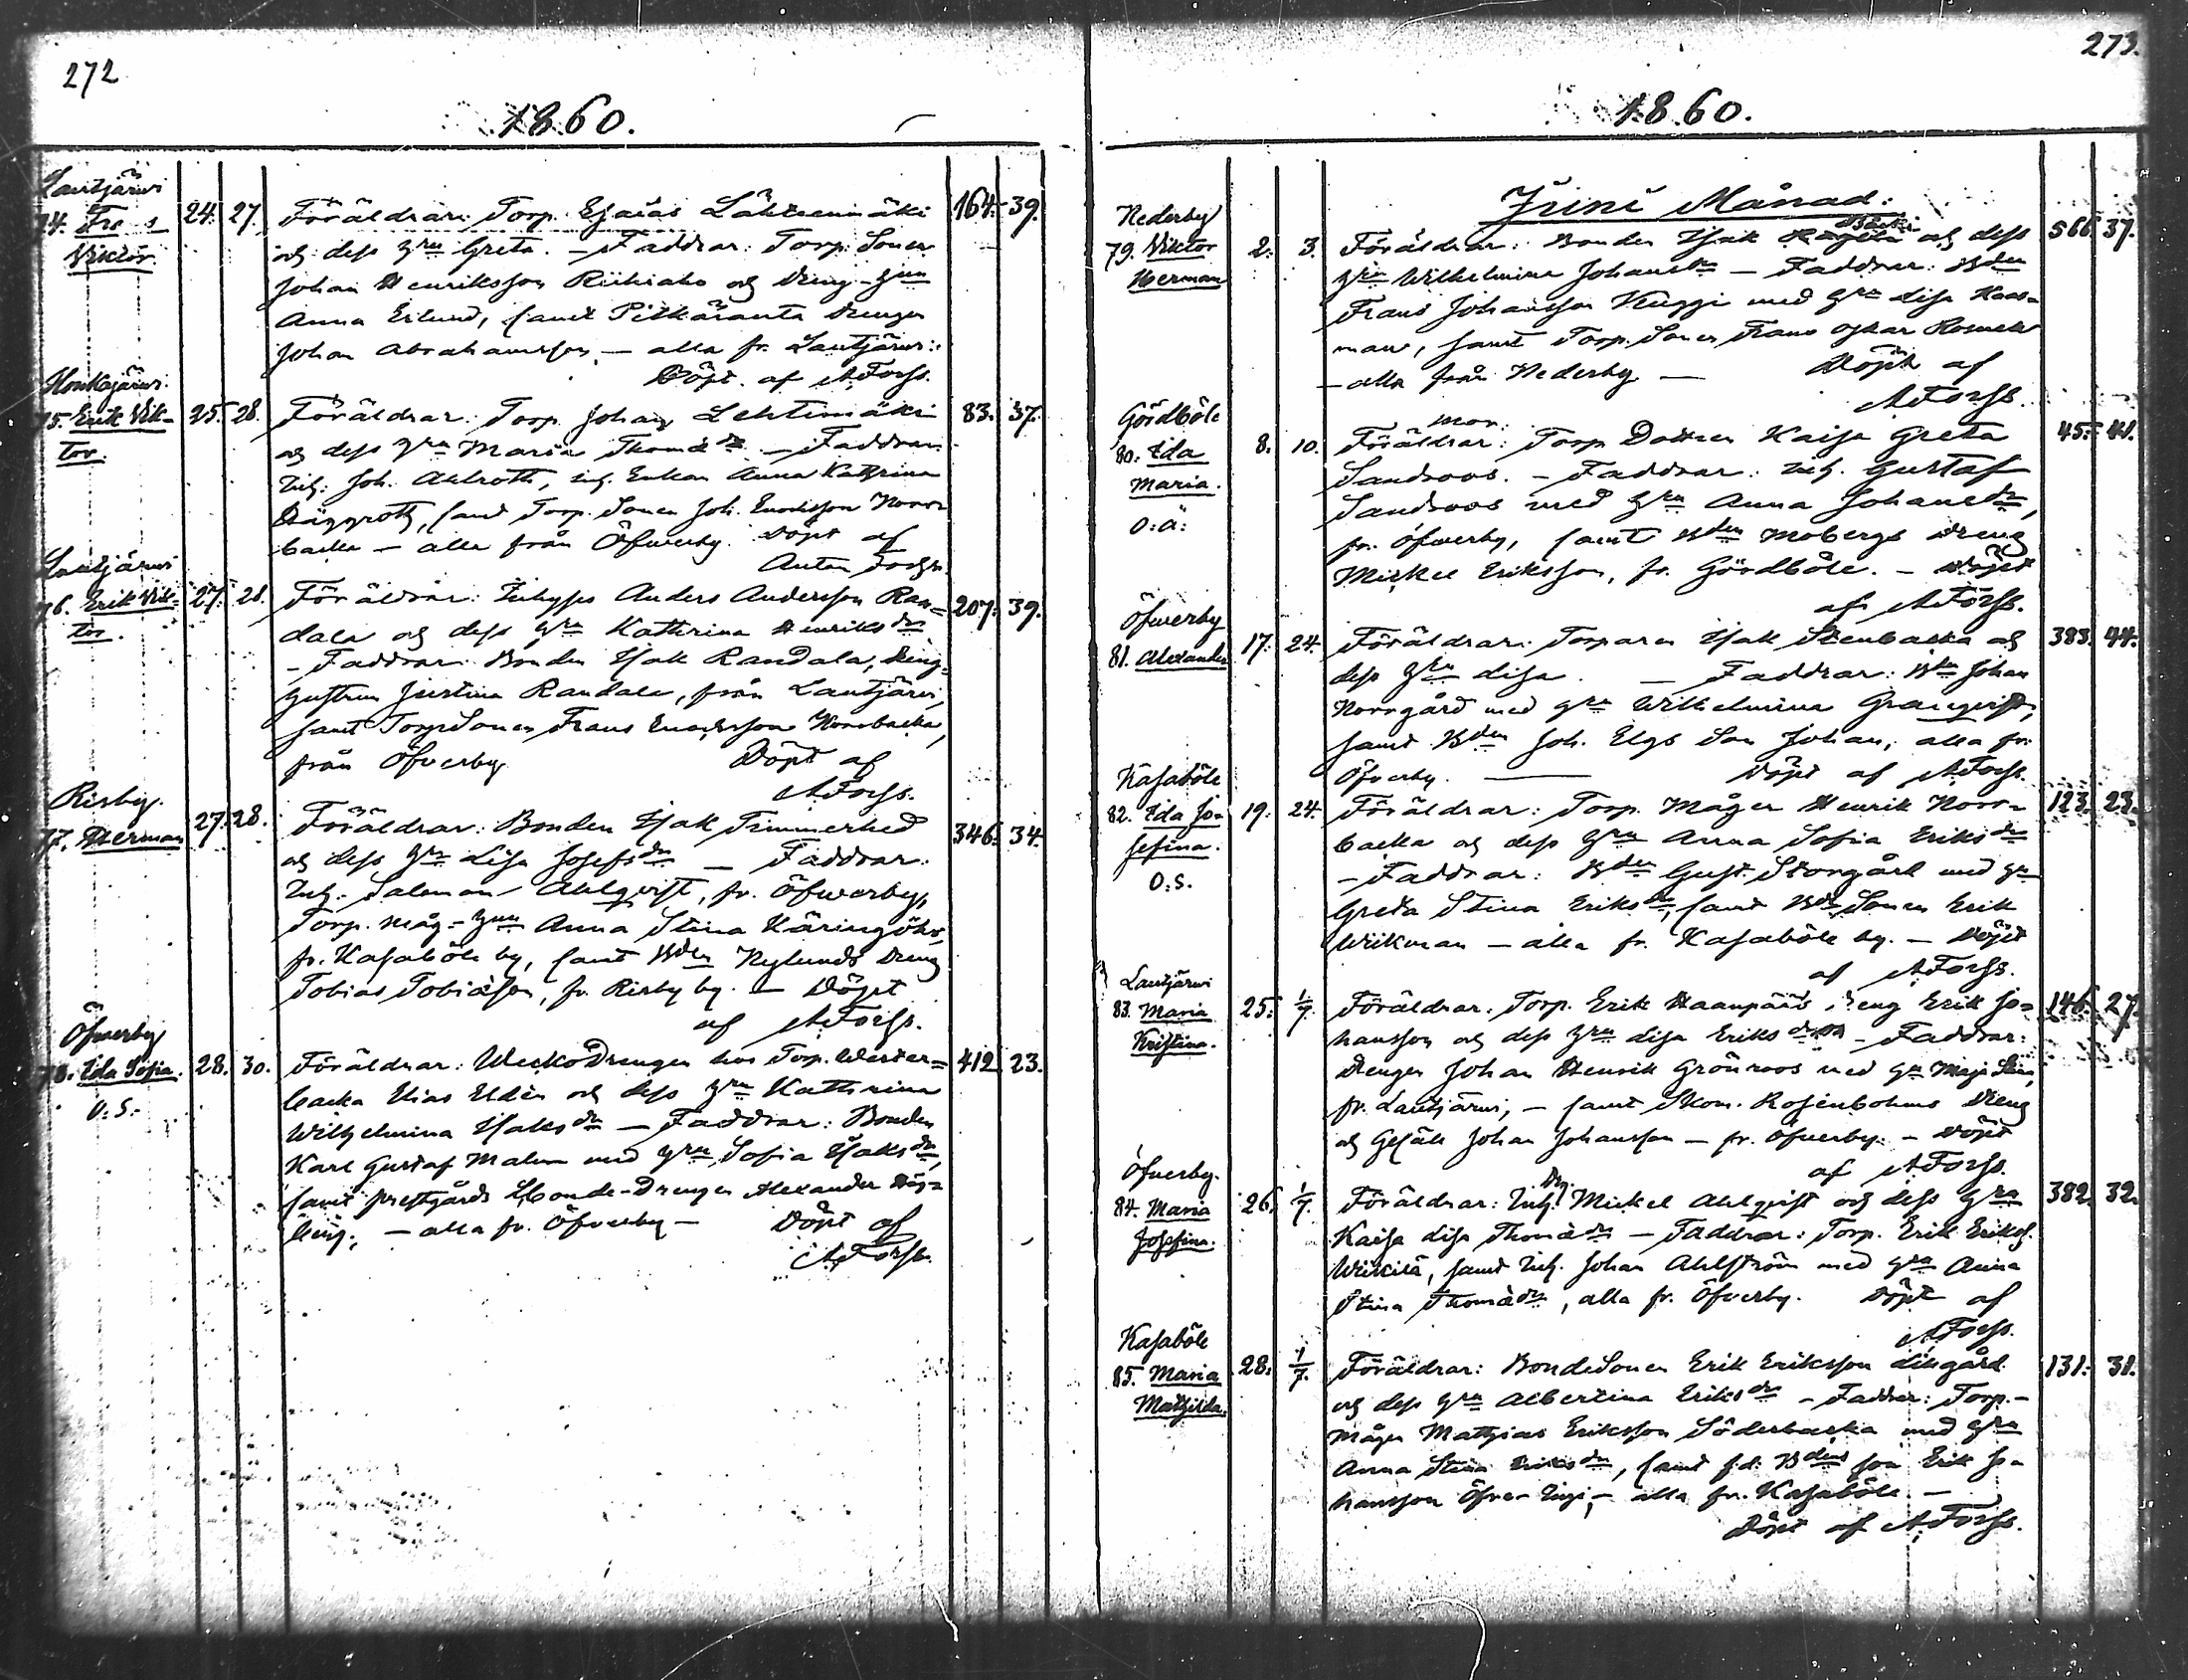 272
1860.
Lautjärwi
74. Frans
Viktor.
24. 27.
Föräldrar: Torp. Esaias Lähteenmäki
och dess hru Greta. — Faddrar: Torp. Sonen
Johan Henriksson Riihiaho och Dreng-hun
Anna Erlund, samt Pitkäranta Drengen
Johan Abrahamsson, — alla fr. Lautjärwi:
Döpt af AForss.
164. 39.
Honkajärwi.
75. Erik Vik-
tor.
25. 28.
Föräldrar: Torp. Johan Lehtimäki
och dess hru Maria Thomædr — Faddrar:
Inh: Joh. Ahlroth, inh. Enkan Anna Kathrina
Häggroth, samt Torp. Sonen Joh. Enoksson Norr-
backa — alla från Öfwerby. Döpt af
Anton Forss.
83. 37.
Lautjärwi
76. Erik Vik-
tor.
27. 28.
Föräldrar: Inhyses Anders Andersson Ran-
dala och dess hru Kathrina Henriksdr
— Faddrar: Bonden Isak Randala, Dreng-
hustrun Justina Randala, från Lautjärwi,
samt TorpSonen Frans Enoksson Norrbacka,
från Öfverby Döpt af
AForss.
207. 39.
Risby.
77. Herman
27. 28.
Föräldrar: Bonden Isak Timmerhed
och dess hru Lisa Josefsdr — Faddrar:
Inh. Salomon Ahlqvist, fr. Öfwerby,
Torp. måg-hun Anna Stina Käringöhr,
fr. Kasaböle by, samt Bden Nylunds Dreng
Tobias Tobiasson, fr. Risby by. — Döpt
af AForss.
346. 34.
Öfwerby
78. Ida Sofia.
O.S.
28. 30.
Föräldrar: WeckoDrengen hos Torp. Wester-
backa Elias Eldén och dess hru Kathrina
Wilhelmina Isaksdr — Faddrar: Bonden
Karl Gustaf Malm med hru Sofia Isaksdr,
samt prestgårds Bonde-Drengen Alexander Hög-
ling, — alla fr. Öfwerby — Döpt af
AForss.
412. 23.
273.
1860.
Juni Månad:
Nederby
79. Viktor
Herman
2. 3.
Föräldrar: Bonden Isak och dess
hru Wilhelmina Johansdr — Faddrar: Bden
Frans Johansson Kuggi med hru Lisa Haas-
man, samt Torp. Sonen Frans Oskar Rosnell
— alla från Nederby — Döpt af
AForss.
566. 37.
Gördböle
80. Ida
Maria.
O:Ä:
8. 10.
mor:
Föräldrar: Torp Dottren Kaisa Greta
Sandroos. — Faddrar: Inh. Gustaf
Sandroos med hru Anna Johansdr,
fr. Öfwerby, samt Bden Mobergs Dreng
Mickel Eriksson, fr. Gördböle. — Döpt
af AForss.
45. 41.
Öfwerby
81. Alexander
17. 24.
Föräldrar: Torparen Isak Stenbacka och
dess hru Lisa. — Faddrar: Bdn Johan
Norrgård med hru Wilhelmina Granqvist,
samt Bden Joh. Elgs Son Johan, alla fr.
Öfverby. — Döpt af AForss.
383. 44.
Kasaböle
82. Ida Jo-
sefina.
O.S.
19. 24.
Föräldrar: Torp. Mågen Henrik Norr-
backa och dess hru Anna Sofia Eriksdr
— Faddrar: Bden Gust. Storgård med hru
Greta Stina Eriksdr, samt BdeSonen Erik
Wiikman — alla fr. Kasaböle by. — Döpt
af AForss.
123. 23.
Lautjärwi
83. Maria
Kristina.
25. 1/7.
Föräldrar: Torp. Erik Haanpääs Dreng Erik Jo-
hansson och dess hru Lisa Eriksdr — Faddrar:
Drengen Johan Henrik Grönroos med hru Maja Stina,
fr. Lautjärwi, — samt Skom. Rosenbohms Dreng
och Gesäll Johan Johansson — fr. Öfwerby. — Döpt
af AForss.
146. 27.
Öfwerby.
84. Maria
Josefina.
26. 1/7.
Drg.
Föräldrar: Inh. Mickel Ahlqvist och dess hru
Kaisa Lisa Thomædr — Faddrar: Torp. Erik Eriks.
Wiikilä, samt Inh. Johan Ahlström med hru Anna
Stina Thomædr, alla fr. Öfwerby. Döpt af
AForss.
382. 32.
Kasaböle
85. Maria
Mathilda.
28. 1/7.
Föräldrar: BondeSonen Erik Eriksson Lillgård
och dess hru Albertina Eriksdr — Faddrar: Torp.-
mågen Mathias Eriksson Söderbacka med hru
Anna Stina Eriksdr, samt f.d. Bdens son Erik Jo-
hansson Öfver-Inge, — alla fr. Kasaböle —
Döpt af AForss.
131. 31.